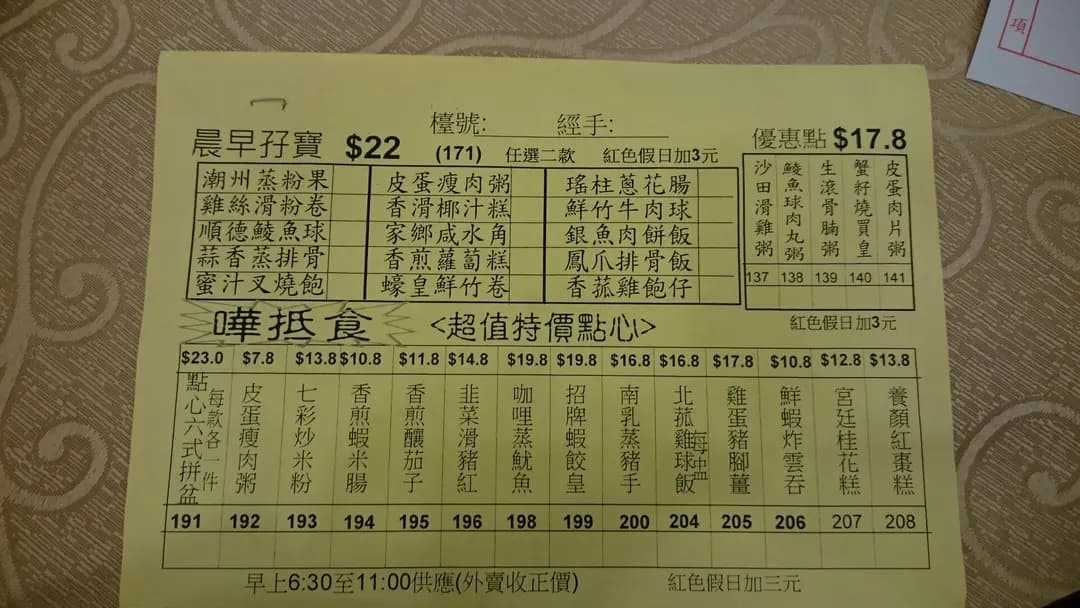 項
檯號: 經手:
晨早孖寶 $22 (171) 任選二款 紅色假日加3元
潮州蒸粉果 皮蛋瘦肉粥 瑤柱蔥花腸
雞絲滑粉卷 香滑椰汁糕 鮮竹牛肉球
順德鯪魚球 家鄉咸水角 銀魚肉餅飯
蒜香蒸排骨 香煎蘿蔔糕 鳳爪排骨飯
蜜汁叉燒飽 蠔皇鮮竹卷 香菇雞飽仔
優惠點 $17.8
沙田滑雞粥
鯪魚球肉丸粥
生滾骨腩粥
蟹籽燒買皇
皮蛋肉片粥
137 138 139 140 141
紅色假日加3元
嘩抵食 <超值特價點心>
$23.0 $7.8 $13.8 $10.8 $11.8 $14.8 $19.8 $19.8 $16.8 $16.8 $17.8 $10.8 $12.8 $13.8
點心六式拼盆
每款各一件
皮蛋瘦肉粥
七彩炒米粉
香煎蝦米腸
香煎釀茄子
韭菜滑豬紅
咖哩蒸魷魚
招牌蝦餃皇
南乳蒸豬手
北菰雞球飯
每盅
雞蛋豬腳薑
鮮蝦炸雲吞
宮廷桂花糕
養顏紅棗糕
191 192 193 194 195 196 198 199 200 204 205 206 207 208
早上6:30至11:00供應(外賣收正價) 紅色假日加三元